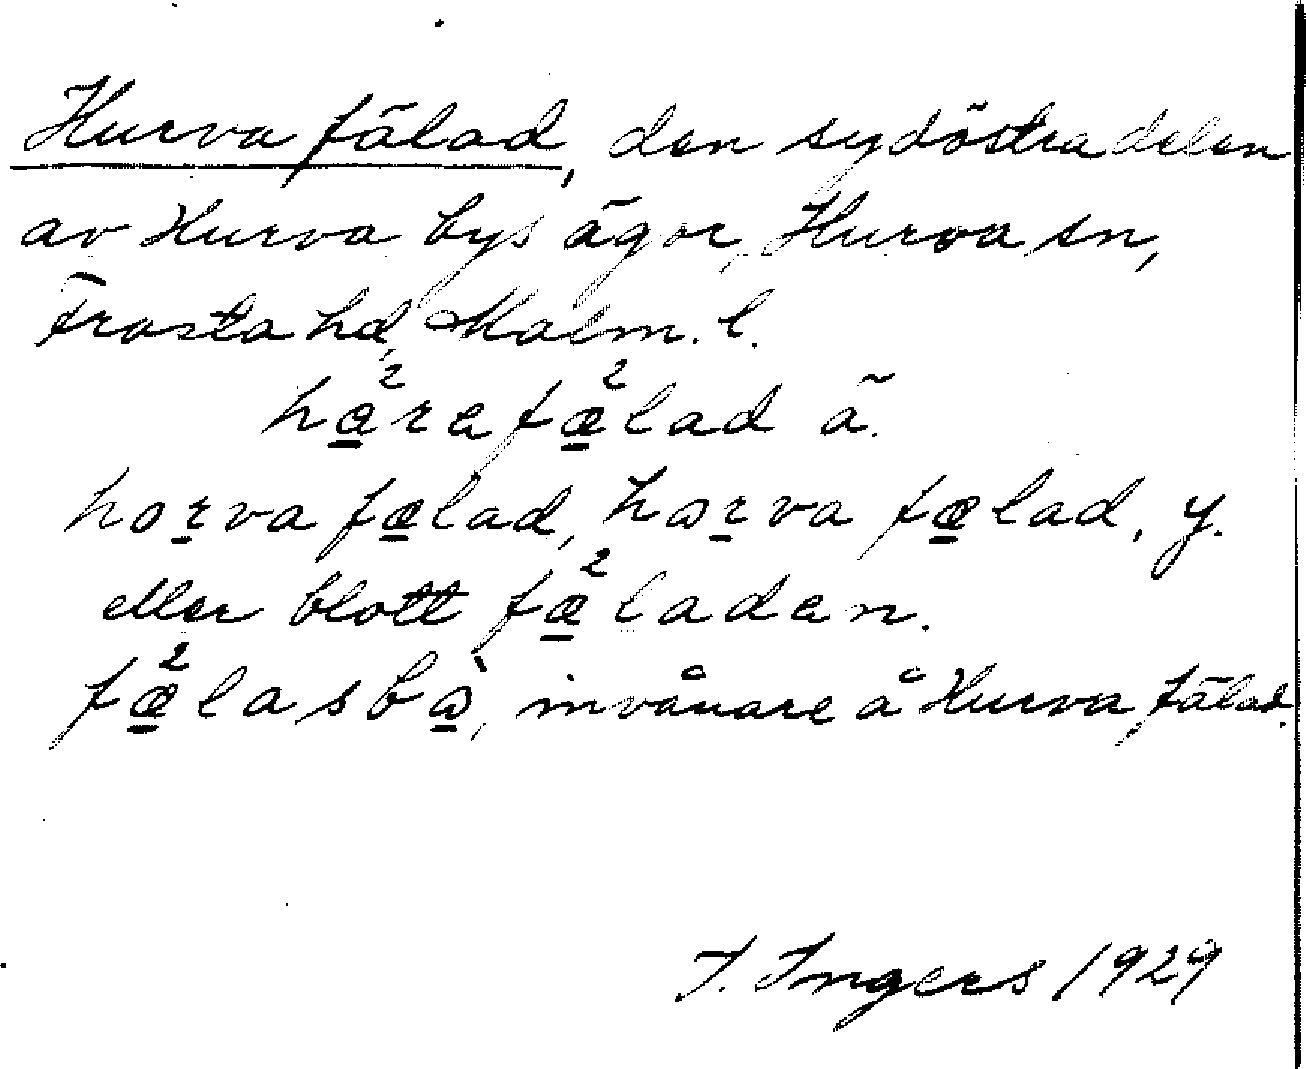 Hurva fälad, den sydöstra delen
av Hurva bys ägor, Hurva sn,
Frosta hd, Malm. l.
ha̲²rafæ̲²lad ä.
hor̲va fæ̲lad, hɷr̲va fæ̲lad, y.
eller blott fæ̲²laden.
fæ̲²lasbɷ̲̀, invånare å Hurva fälad.
I. Ingers 1929